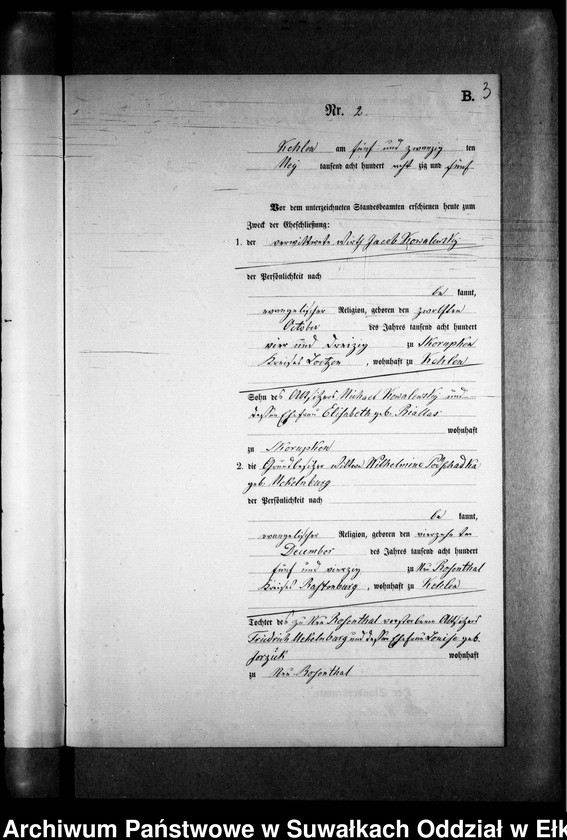 B. 3
Nr. 2.
Kehlen am fünf und zwanzig ten
May tausend acht hundert acht zig und fünf
Vor dem unterzeichneten Standesbeamten erschienen heute zum
Zweck der Eheschließung:
1. der verwittwete Wirth Jacob Kowalewsky
der Persönlichkeit nach
be kannt,
evangelischer Religion, geboren den zwölften
October des Jahres tausend acht hundert
vier und dreizig zu Skorupken
Kreises Loetzen, wohnhaft zu Kehlen
Sohn des Altsitzers Michael Kowalewsky und
dessen Ehefrau Elisabeth geb. Biallas
wohnhaft
zu Skorupken
2. die Grundbesitzer Wittwe Wilhelmine
geb. Mekelnburg
der Persönlichkeit nach
be kannt,
evangelischer Religion, geboren den vierzehn ten
December des Jahres tausend acht hundert
fünf und vierzig zu Neu Rosenthal
Kreises Rastenburg, wohnhaft zu Kehlen
Tochter des zu Neu Rosenthal verstorbenen Altsitzers
Friedrich Mekelnburg und dessen Ehefrau Louise geb.
Jorzick wohnhaft
zu Neu Rosenthal
Archiwum Państwowe w Suwałkach Oddział w Ełk